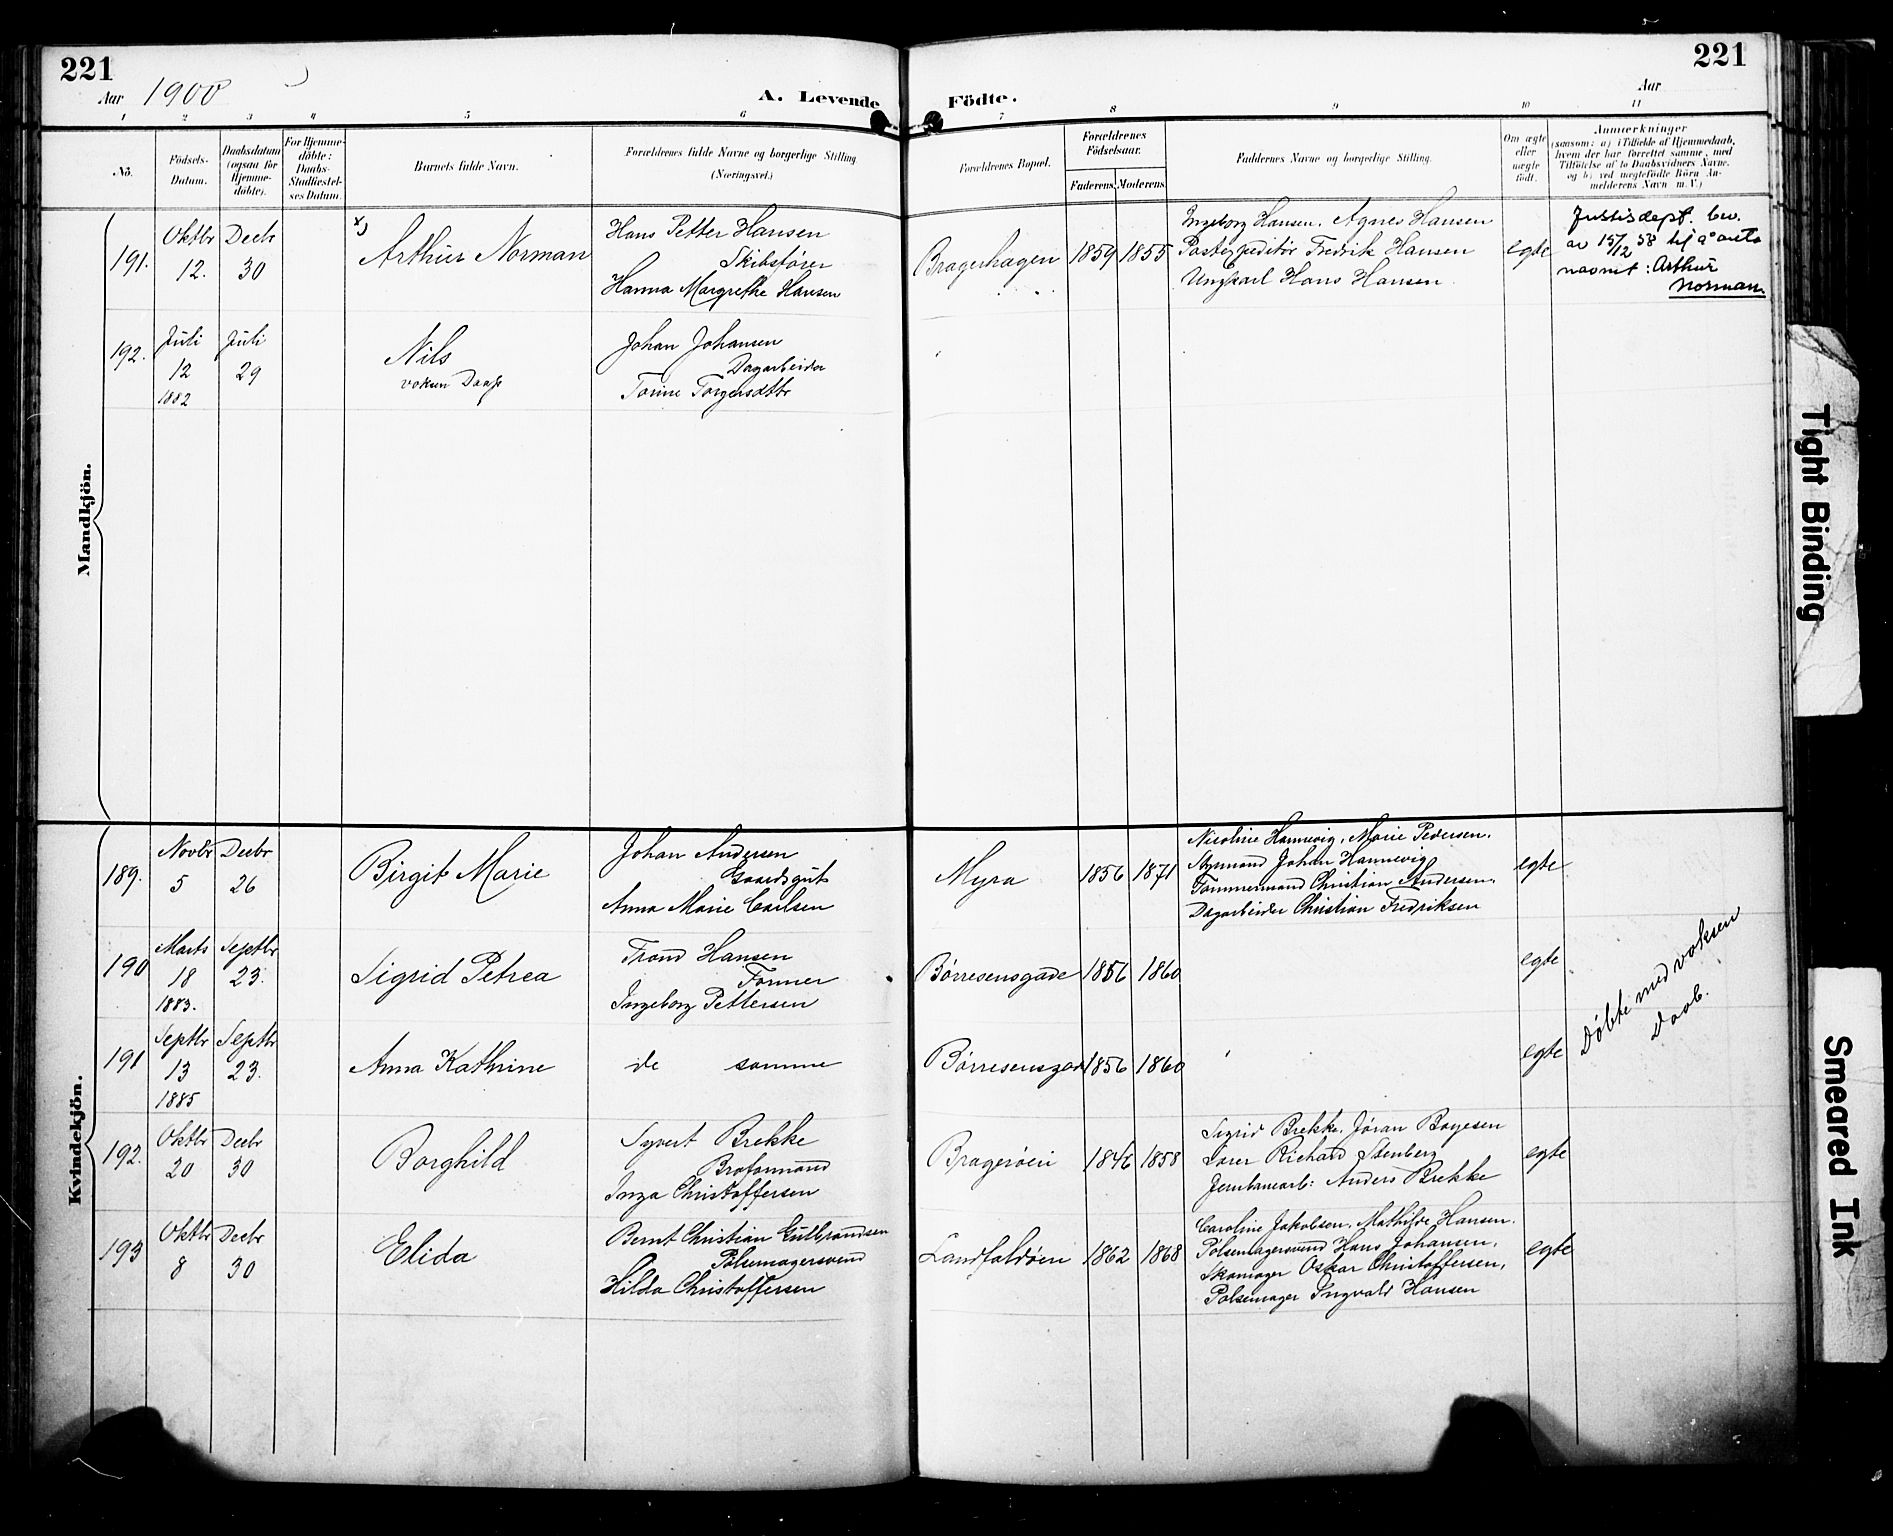 221
221
Aar 1900
A. Levende Födte.
Aar
1 2 3 4 5 6 7 8 9 10 11
No.
Födsels-Datum.
Daabsdatum (ogsaa for Hjemme-döbte).
For Hjemme-döbte: Daabs-Stadfæstelses Datum.
Barnets fulde Navn.
Forældrenes fulde Navne og borgerlige Stilling (Næringsvei.)
Forældrenes Bopæl.
Forældrenes Födselsaar.
Faderens. Moderens.
Faddernes Navne og borgerlige Stilling.
Om ægte eller uægte födt.
Anmærkninger
(saasom: a) i Tilfælde af Hjemmedaab, hvem der har forrettet samme, med Tilföielse af to Daabsvidners Navne, og b) ved uægtefödte Börn Anmelderens Navn m. V.)
Mandkjön.
191. Oktbr 12. Decbr 30
x) Arthur Norman
Hans Petter Hansen
Skibsfører
Hanna Margrethe Hansen
Bragerhagen 1859 1855
Ingeborg Hansen, Agnes Hansen
Postexpeditør Fredrik Hansen
Ungkarl Hans Hansen
egte
Justisdept. bev.
av 15/12 58 til å anta
navnet: Arthur
Norman
192. Juli 12 1882 Juli 29
Nils
voksen Daab
Johan Johansen
Dagarbeider
Torine Torgersdtr
Kvindekjön.
189. Novbr 5 Decbr 26
Birgit Marie
Johan Andersen
Gaardsgut
Anna Marie Carlsen
Myra 1856 1871
Nicoline Hannevig, Marie Pedersen.
Johan Hannevig
Tømmermand Christian Andersen.
Dagarbeider Christian Fredriksen
egte
190 Marts 18 1883. Septbr 23.
Sigrid Petrea
Trond Hansen
Former
Ingeborg Pettersen
Børresensgade 1856 1860
egte
191 Septbr 13 1885 Septbr 23.
Anna Kathrine
de samme
Børresensgad 1856 1860
egte
Døbte med voksen
Daab.
192. Oktbr 20 Decbr 30
Borghild
Syvert Brekke
Broformand
Inga Christoffersen
Bragerøen 1846 1858
Sigrid Brekke, Jøran Bogesen
Richard Stenberg
Jernbanearb: Anders Brekke
egte
193 Oktbr 8 Decbr 30
Elida
Bernt Christian Gulbrandsen
Pølsemagersvend
Hilda Christoffersen
Landfaldøen 1862 1868
Caroline Jakobsen, Mathilde Hansen.
Pølsemagersvend Hans Johansen,
Skomager Oskar Christoffersen,
Pølsemager Ingvald Hansen
egte
Tight Binding
Smeared Ink